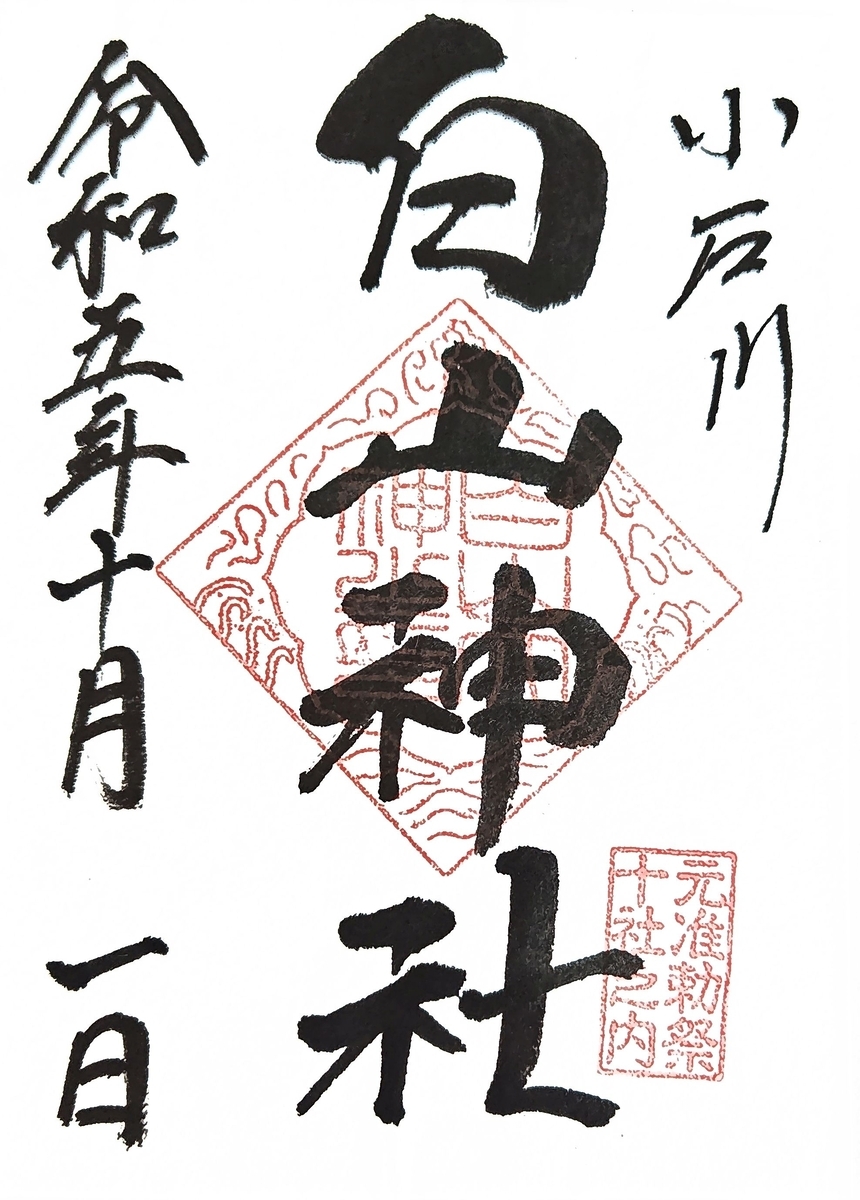 小石川
白山神社
元准勅祭
十社之内
令和五年十月一日